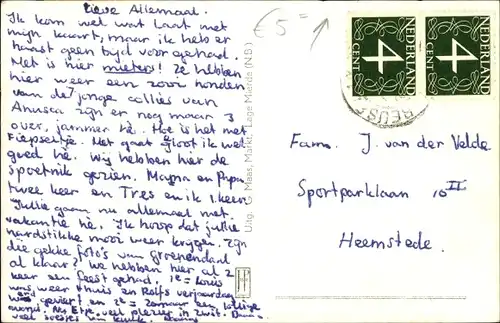 Lieve Allemaal.
Ik kom wel wat laat met
mijn kaart, maar ik heb er
haast geen tijd voor gehad.
Het is hier mieters! Ze hebben
hier weer een zooi honden
van de 7 jonge collies van
Anusca zijn er nog maar 3
over, jammer hè. Hoe is het met
Fiepseltje. Het gaat groot ik wed
goed hè. Wij hebben hier de
spoetnik gezien. Mama en Papa
twee keer en Tres en ik 1 keer.
Jullie gaan nu allemaal met
vakantie hè. Ik hoop dat jullie
hardstikke mooi weer krijgen. Zijn
die gekke foto's van Groenendaal
al klaar? We hebben hier al 2
keer een feest gehad. 1e = Louis
was weer thuis en Rolfs verjaardag
werd gevierd en 2e = zomaar een
avond. veel plezier in
veel
€ 5 =
Uitg. G. Maas, Markt, Lage Mierde (N.B.)
NEDERLAND
4
CENT
NEDERLAND
4
CENT
REUSEL
Fam. J. van der Velde
Sportparklaan 10 II
Heemstede.